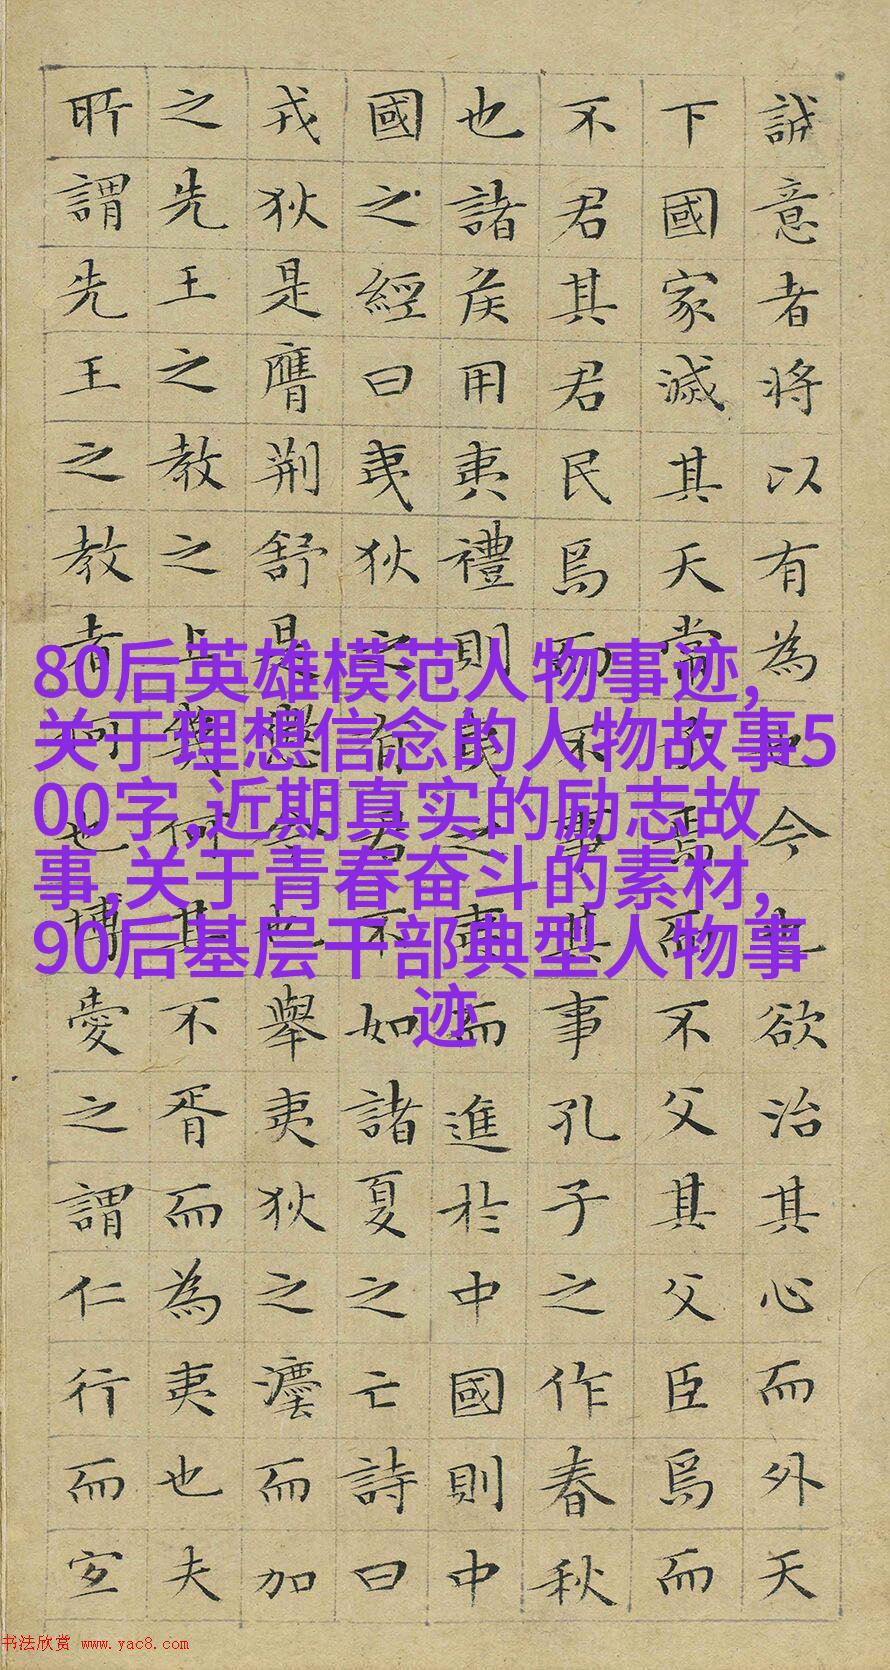 誠意者将以有為也今也欲治其心而外天
下國家滅其天常子焉而不父其父臣焉而
不君其君民焉而不事其事孔子之作春秋
也諸侯用夷禮則夷之夷而進於中國則中
國之經曰夷狄之有君不如諸夏之亡詩曰
戎狄是膺荆舒是懲今也舉夷狄之灋而加
之先王之教之上幾何其不胥而為夷也夫
所謂先王之教者何也博愛之謂仁行而宜
80后英雄模范人物事迹,
关于理想信念的人物故事5
00字,近期真实的励志故
事,关于青春奋斗的素材,
90后基层干部典型人物事
迹
书法欣赏 www.yac8.com